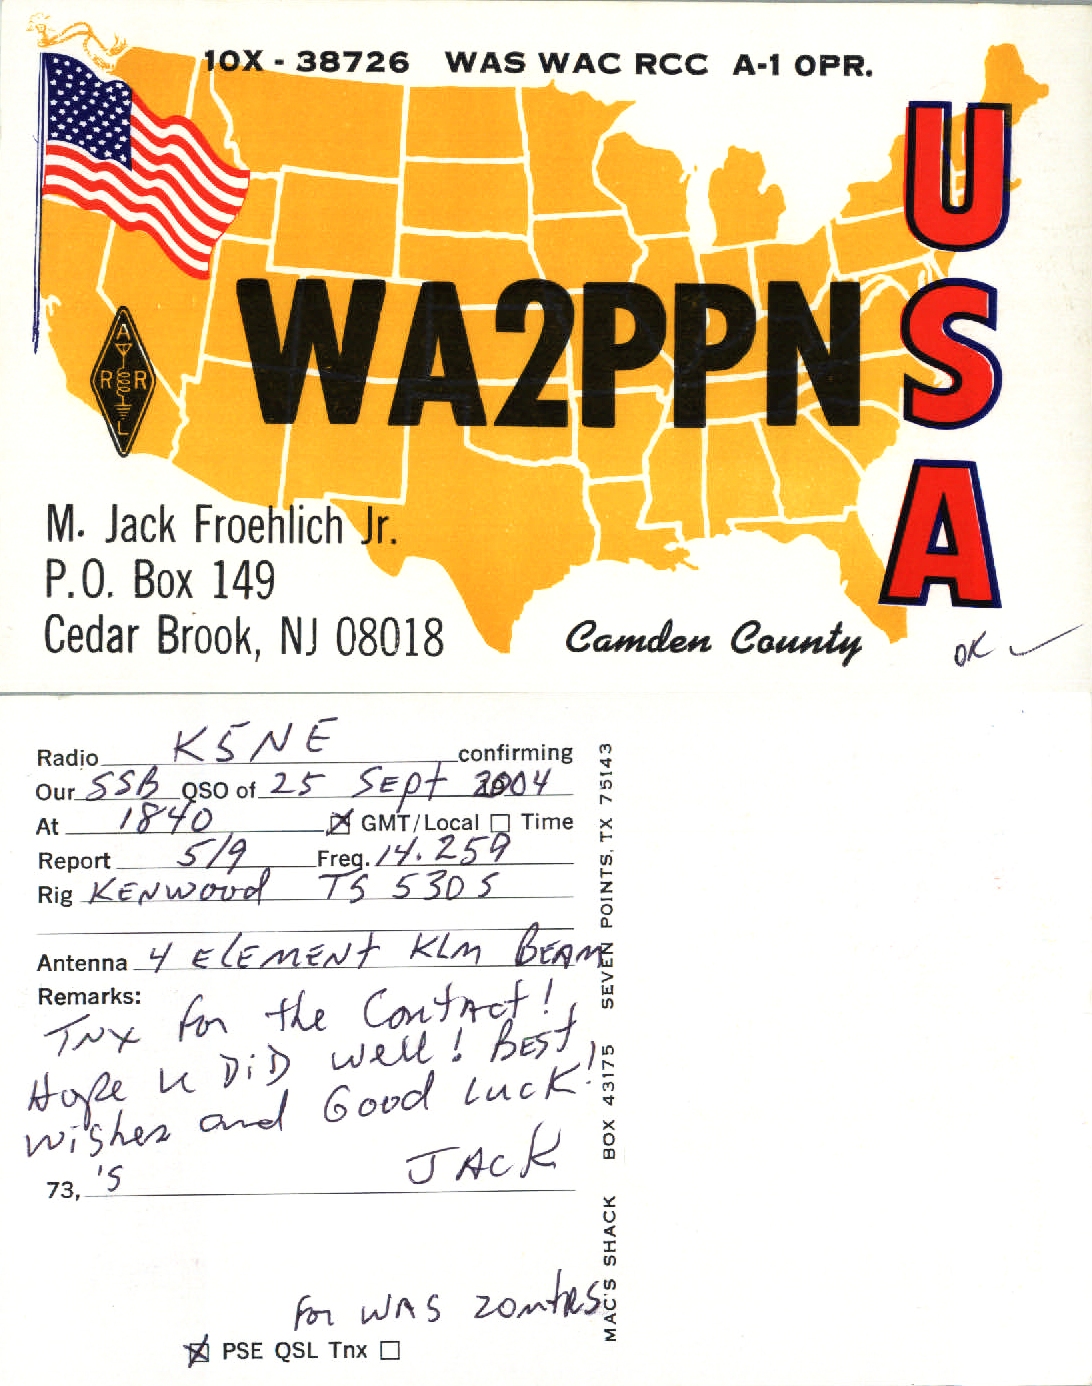 10X - 38726 WAS WAC RCC A-1 OPR.
USA
WA2PPN
A
R R
L
M. Jack Froehlich Jr.
P.O. Box 149
Cedar Brook, NJ 08018
Camden County
OK ✓
Radio K5NE confirming
Our SSB QSO of 25 Sept 2004
At 1840 ☒ GMT/Local ☐ Time
Report 5/9 Freq. 14.259
Rig KENWOOD TS 530S
Antenna 4 ELEMENT KLM BEAM
Remarks:
TNX for the Contact!
Hope U DiD well! BEST
wishes and Good Luck!
73,'s JACK
For WAS 20mtrs
☒ PSE QSL Tnx ☐
MAC'S SHACK BOX 43175 SEVEN POINTS, TX 75143